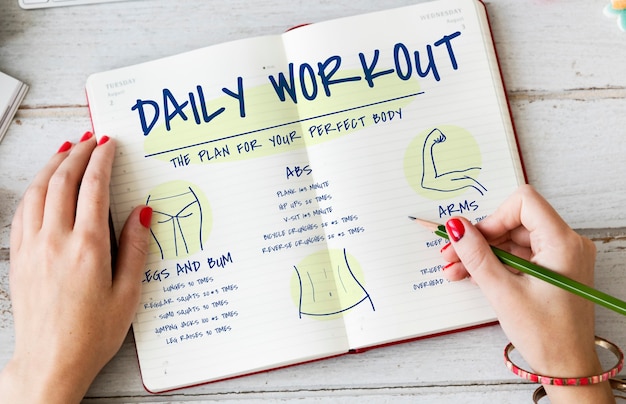 TUESDAY
August
3
WEDNESDAY
August
4
DAILY WORKOUT
THE PLAN FOR YOUR PERFECT BODY
ABS
PLANK 1*3 MINUTE
UPS 20 TIMES
V-SIT 1*3 MINUTE
BICYCLE CRUNCHES 20 TIMES
REVERSE CRUNCHES 20 TIMES
ARMS
LEGS AND BUM
LUNGES 30 TIMES
REGULAR SQUATS 20 *3 TIMES
SUMO SQUATS 30 TIMES
JUMPING JACKS 100 TIMES
LEG RAISES 30 TIMES